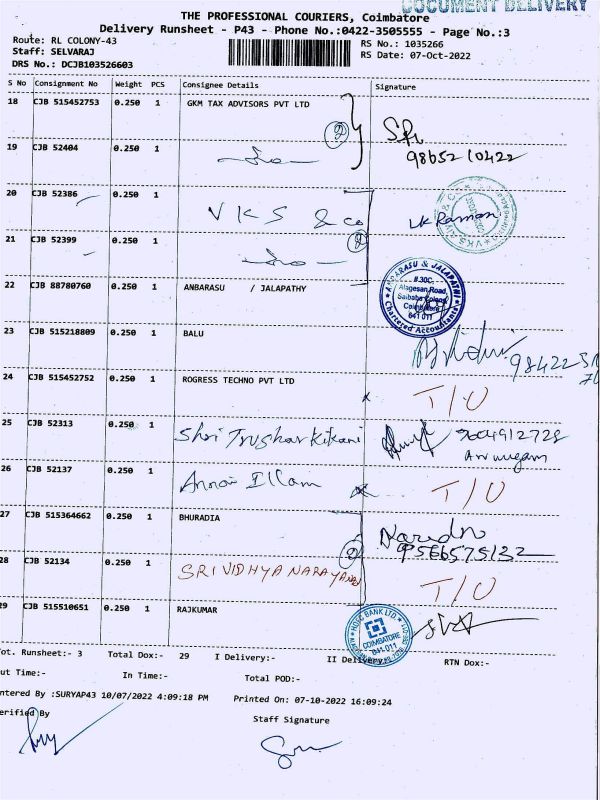 DOCUMENT DELIVERY
THE PROFESSIONAL COURIERS, Coimbatore
Delivery Runsheet - P43 - Phone No.:0422-3505555 - Page No.:3
Route: RL COLONY-43
RS No.: 1035266
Staff: SELVARAJ
RS Date: 07-Oct-2022
DRS No.: DCJB103526603
S No Consignment No Weight PCS Consignee Details Signature
18 CJB 515452753 0.250 1 GKM TAX ADVISORS PVT LTD
9865210422
19 CJB 52404 0.250 1
20 CJB 52386 0.250 1 VKS & Co
VK Raman
21 CJB 52399 0.250 1
22 CJB 88780760 0.250 1 ANBARASU / JALAPATHY
ANBARASU & JALAPATHI
# 30C,
Alagesan Road,
Saibaba Colony
Coimbatore
641 011
Chartered Accountants
23 CJB 515218809 0.250 1 BALU
98422
24 CJB 515452752 0.250 1 ROGRESS TECHNO PVT LTD
T/U
25 CJB 52313 0.250 1 Shri Trushar Kikani
Arumugam
26 CJB 52137 0.250 1 Annai Illam
T/U
27 CJB 515364662 0.250 1 BHURADIA
9566575132
28 CJB 52134 0.250 1 SRIVIDHYA NARAYANAN
T/U
29 CJB 515510651 0.250 1 RAJKUMAR
HDFC BANK LTD.
COIMBATORE
641-011
Tot. Runsheet:- 3 Total Dox:- 29 I Delivery:- II Delivery:- RTN Dox:-
Out Time:- In Time:- Total POD:-
Entered By :SURYAP43 10/07/2022 4:09:18 PM Printed On: 07-10-2022 16:09:24
Verified By
Staff Signature